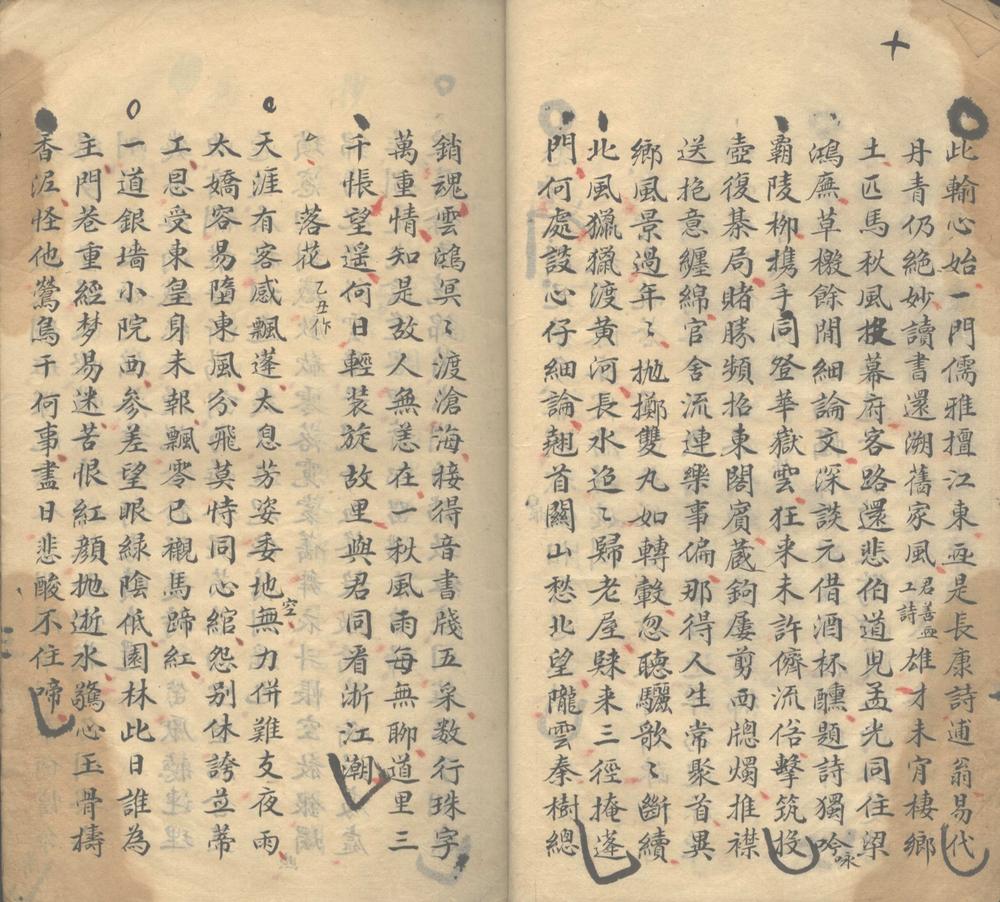 此輸心始一門儒雅擅江東亟是長康詩逋翁易代
丹青仍絕妙讀書還溯舊家風君善畫工詩雄才未宵棲鄉
土匹馬秋風投幕府客路還悲伯道兒孟光同住梁
鴻廡草檄餘閒細論文深談元借酒杯醺題詩獨吟咏
霸陵柳攜手同登華嶽雲狂来未許儕流俗擊筑投
壺復棊局賭勝頻招東閣賓蔵鉤屢剪西牕燭推襟
送抱意纏綿官舍流連樂事偏那得人生常聚首異
鄉風景過年〻抛擲雙丸如轉轂忽聴驪歌〻斷續
北風獵獵渡黄河長水迢〻歸老屋踈来三徑掩蓬
門何處談心仔細論翹首關山愁北望隴雲秦樹總
銷魂雲鴻溟〻渡滄海接得音書牋五采数行珠字
萬重情知是故人無恙在一秋風雨每無聊道里三
千悵望遥何日輕装旋故里與君同看浙江潮
落花乙丑作
天涯有客感飄蓬太息芳姿委地空無力併難支夜雨
太嬌容易墮東風分飛莫恃同心綰怨别休誇並蒂
工恩受東皇身未報飄零已襯馬蹄紅
一道銀墻小院西參差望眼綠隂低園林此日誰為
主門巷重經梦易迷苦恨紅顔抛逝水驚心玉骨擣
香泥怪他鶯鳥干何事盡日悲酸不住啼